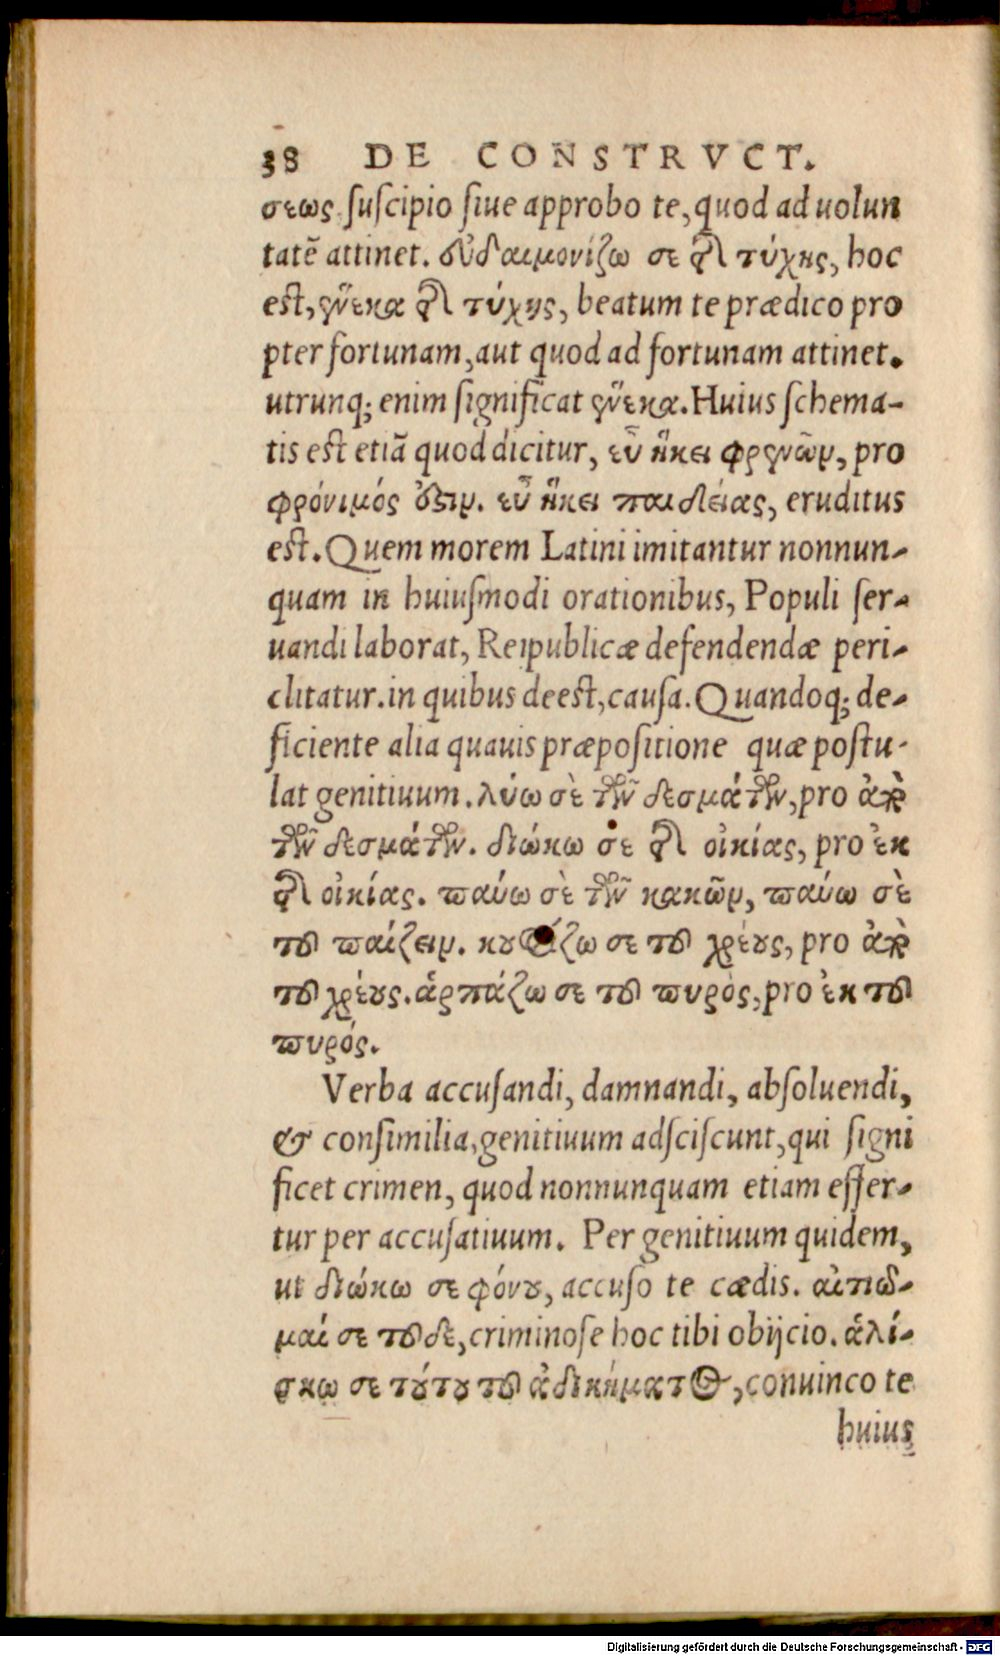 38 DE CONSTRVCT.
σεως suscipio siue approbo te, quod ad uolun
tatē attinet. εὐδαιμονίζω σε τῆς τύχης, hoc
est, ἕνεκα τῆς τύχης, beatum te prædico pro
pter fortunam, aut quod ad fortunam attinet.
utrunq; enim significat ἕνεκα. Huius schema-
tis est etiā quod dicitur, εὖ ἥκει φρενῶν, pro
φρόνιμός ἐστιν. εὖ ἥκει παιδείας, eruditus
est. Quem morem Latini imitantur nonnun-
quam in huiusmodi orationibus, Populi ser-
uandi laborat, Reipublicæ defendendæ peri-
clitatur. in quibus deest, causa. Quandoq; de-
ficiente alia quauis præpositione quæ postu-
lat genitiuum. λύω σὲ τῶν δεσμάτων, pro ἀπὸ
τῶν δεσμάτων. διώκω σε τῆς οἰκίας, pro ἐκ
τῆς οἰκίας. παύω σὲ τῶν κακῶν, παύω σὲ
τοῦ παίζειν. κουφίζω σε τοῦ χρέους, pro ἀπὸ
τοῦ χρέους. ἁρπάζω σε τοῦ πυρὸς, pro ἐκ τοῦ
πυρός.
Verba accusandi, damnandi, absoluendi,
& consimilia, genitiuum adsciscunt, qui signi
ficet crimen, quod nonnunquam etiam effer-
tur per accusatiuum. Per genitiuum quidem,
ut διώκω σε φόνου, accuso te cædis. αἰτιῶ-
μαί σε τοῦδε, criminose hoc tibi obijcio. ἁλί-
σκω σε τούτου τοῦ ἀδικήματος, conuinco te
huius
Digitalisierung gefördert durch die Deutsche Forschungsgemeinschaft - DFG